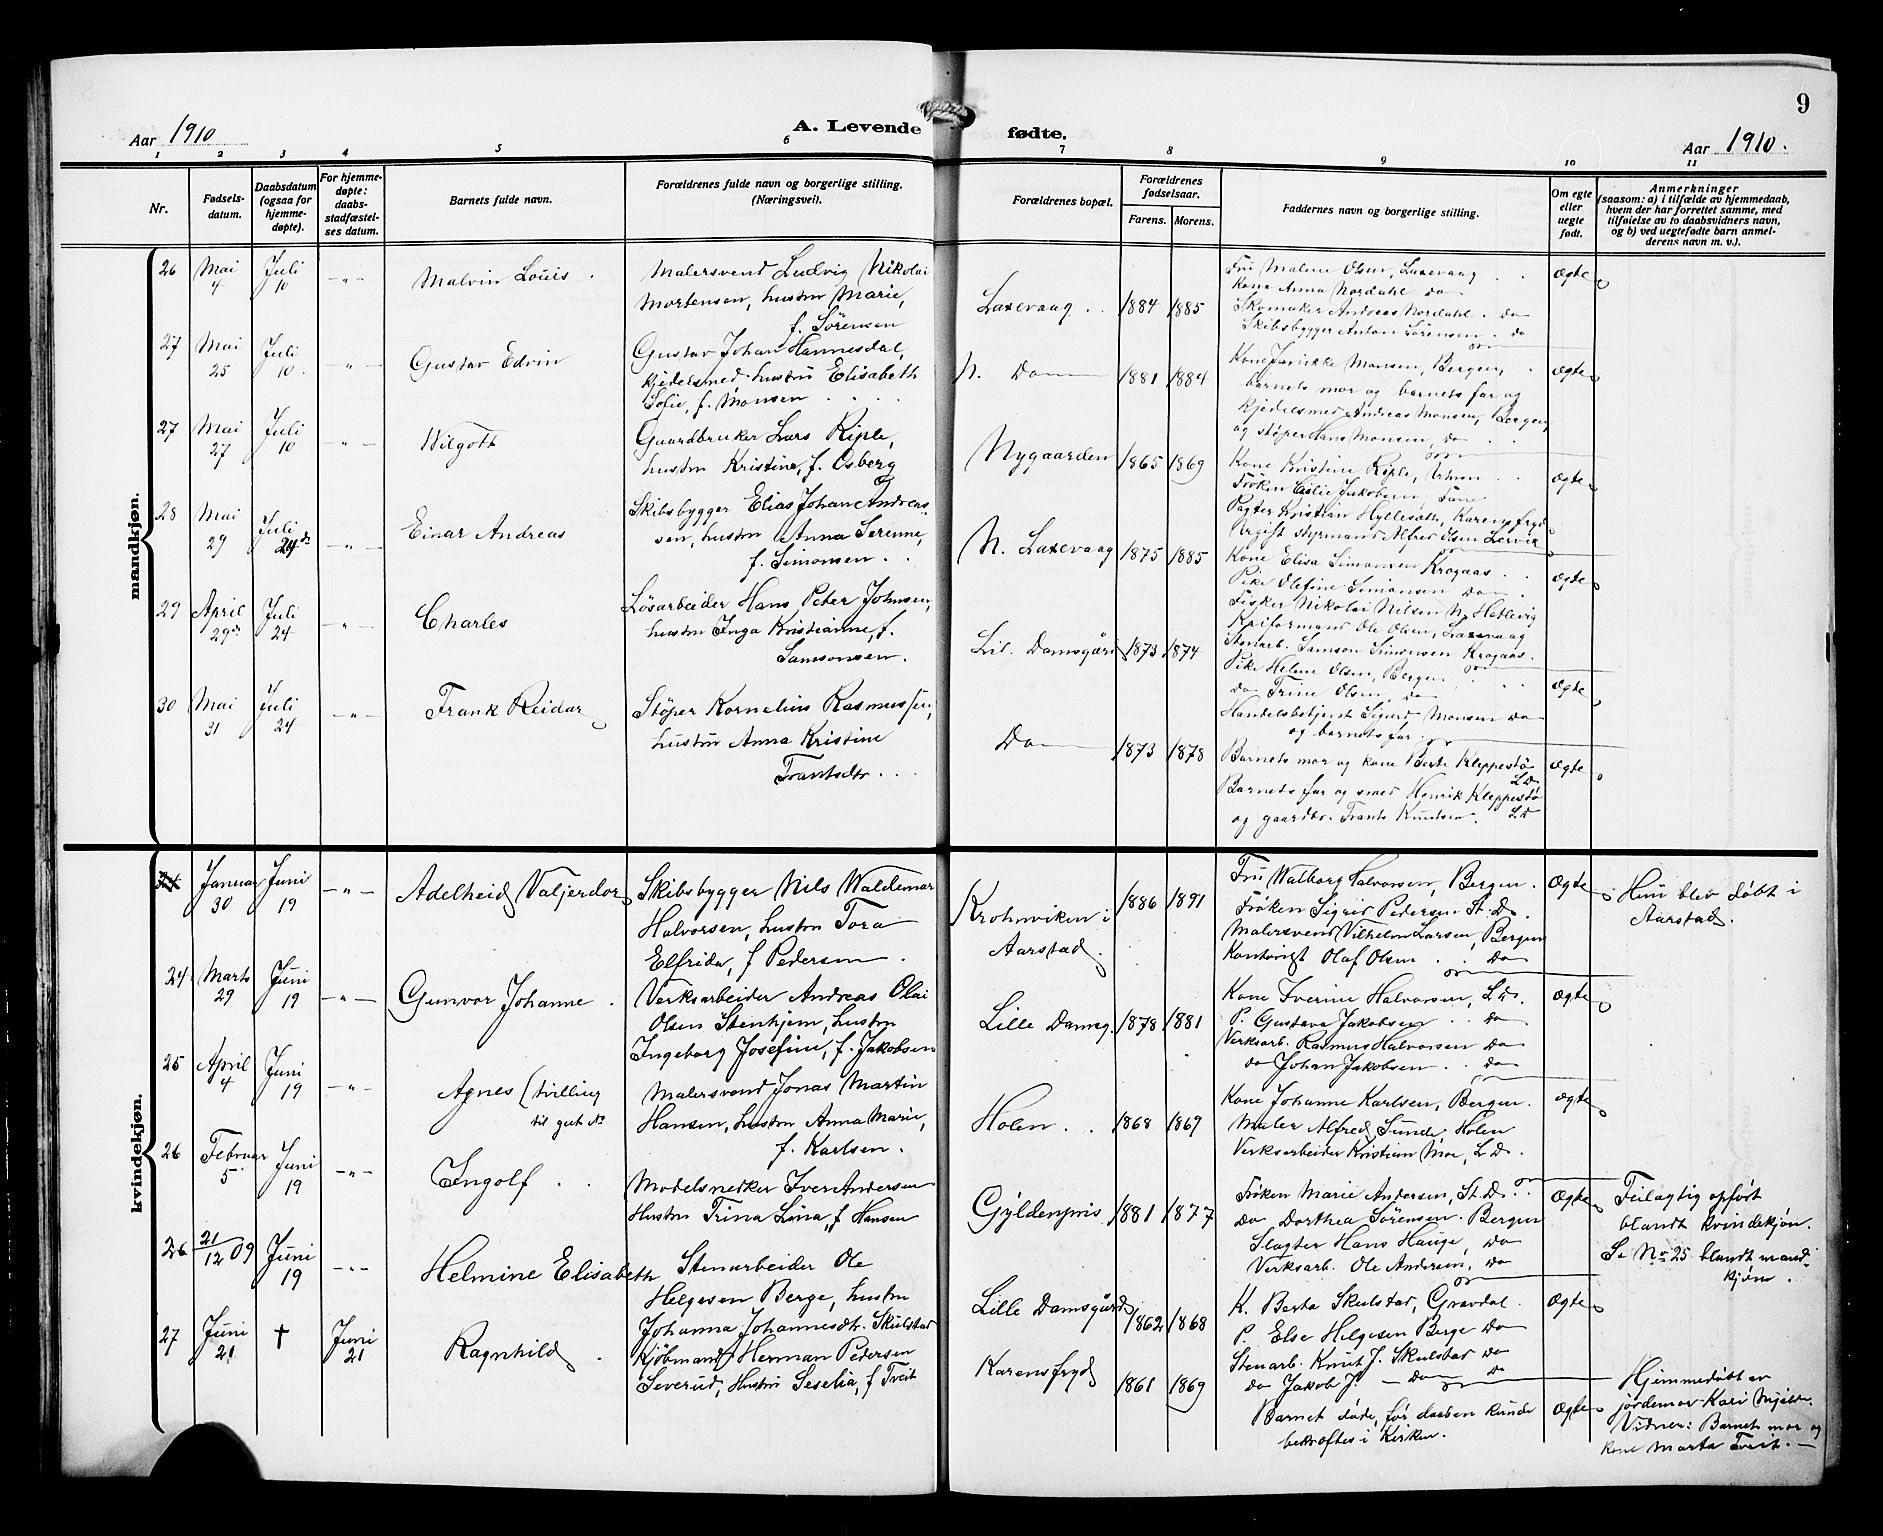 9
Aar 1910
A. Levende fødte.
Aar 1910.
1 2 3 4 5 6 7 8 9 10 11
Nr.
Fødsels-
datum.
Daabsdatum
(ogsaa for
hjemme-
døpte).
For hjemme-
døpte:
daabs-
stadfæstel-
ses datum.
Barnets fulde navn.
Forældrenes fulde navn og borgerlige stilling.
(Næringsvei).
Forældrenes bopæl.
Forældrenes
fødselsaar.
Farens. Morens.
Faddernes navn og borgerlige stilling.
Om egte
eller
uegte
født.
Anmerkninger
(saasom: a) i tilfælde av hjemmedaab,
hvem der har forrettet samme, med
tilføielse av to daabsvidners navn,
og b) ved uegtefødte barn anmel-
derens navn m. v.).
mandkjøn.
26 Mai 4 Juli 10 -"- Malvin Louis.
Malersvend Ludvig Nikolai
Mortensen, hustru Marie,
f. Sørensen
Laxevaag .. 1884 1885
Fru Malene Olsen, Laxevaag
Kone Anna Nordahl do
Skomaker Andreas Nordahl. do
Skibsbygger Anton Sørensen. do
Ægte
27 Mai 25 Juli 10. -"- Gustav Edvin
Gustav Johan Hannesdal,
kjedersmed hustru Elisabeth
Sofie, f. Monsen
N. Do 1881 1884
Kone Jannikke Monsen, Bergen,
barnets mor og barnets far og
kjedelsmed Andreas Monsen, Bergen,
og støper Hans Monsen, do
Ægte
27 Mai 27 Juli 10 -"- Wilgott
Gaardbruker Lars Riple,
hustru Kristine, f. Osberg
Nygaarden 1865 1869
Kone Kristine Riple,
Frøken Cecilie Jakobsen, Fane
Pagter Kristian Hyllesøth, Karensfryd
Ugift styrmand Alfred Olsen Lervik
Ægte
28 Mai 29 Juli 24de -"- Einar Andreas
Skibsbygger Elias Johan Andreas-
sen, hustru Anna Serenne,
f. Simonsen ..
N. Laxevaag 1875 1885
Kone Elisa Simonsen Krogaas
Pike Olefine Simonsen do
Fisker Nikolai Nilsen N. Hatlevig
Ole Olsen, Laxevaag
Stenarb. Samson Simonsen Krogaas.
Ægte
29 April 29de Juli 24 -"- Charles
Løsarbeider Hans Peter Johnsen,
hustru Inga Kristianne, f.
Samsonsen.
Lil. Damsgård 1873 1874
Pike Helene Olsen, Bergen
do Trine Olsen, do
Handelsbetjent Sigurd Monsen do
og barnets far.
Ægte
30 Mai 31 Juli 24 -"- Frank Reidar
Støper Kornelius Rasmussen,
hustru Anna Kristine
Frantsdtr. ..
Do 1873 1878
Barnets mor og kone Berte Kleppestø
L.D.
Barnets far og smed Henrik Kleppestø
og gaardbr. Frants Knudsen. L.D
Ægte
kvindekjøn.
24 Januar 30 Juni 19 -"- Adelheid Valjerdor
Skibsbygger Nils Waldemar
Halvorsen, hustru Tora
Elfrida, f Pedersen.
Krohnviken i
Aarstad
1886 1891
Fru Walborg Halvorsen, Bergen.
Frøken Sigrid Pedersen St. D.
Malersvend Vilhelm Larsen, Bergen
Kontorist Olaf Olsen .. do
Ægte
Hun blev døbt i
Aarstad.
24 Marts 29 Juni 19 -"- Gunvor Johanne.
Verksarbeider Andreas Olai
Olsen Stenhjem, hustru
Ingeborg Josefine, f. Jakobsen
Lille Damsg. 1878 1881
Kone Iverine Halvorsen, L.D.
P. Gustava Jakobsen .. do
Verksarb. Rasmus Halvorsen do
do Johan Jakobsen .. do
Ægte
25 April 4 Juni 19 -"- Agnes (tvilling
til gut
Malersvend Jonas Martin
Hansen, hustru Anna Marie,
f. Karlsen.
Holen .. 1868 1869
Kone Johanne Karlsen, Bergen.
Maler Alfred Sunde, Holen
Verksarbeider Kristian Moe, L D.
Ægte
26 Februar 5 Juni 19 -"- Ingolf ..
Modelsnedker Iver Andersen
Hustru Trina Lina, f Hansen
Gyldenpris 1881 1877
Frøken Marie Andersen, St. D.
do Dorthea Sørensen. Bergen
Slagter Hans Hauge, do
Verksarb. Ole Andersen, do
Ægte
Feilagtig opført
blandt kvindekjøn.
Se No 25 blandt mand-
kjøn.
26 21/12 09 Juni 19 -"- Helmine Elisabeth
Stenarbeider Ole
Helgesen Berge, hustru
Johanna Johannesdtr. Skulstad
Lille Damsgård 1862 1868
K. Berta Skulstad, Gravdal.
P. Else Helgesen Berge do
Stenarb. Knut J. Skulstad do
do Jakob J. - do - do
Ægte
27 Juni 21 † Juni 21 Ragnhild.
Kjøbmand Herman Pedersen
Severud, Hustru Seselia, f Tveit
Karensfryd 1861 1869
Barnet døde, før daaben kunde
bekræftes i Kirken.
Ægte
Hjemmedøbt av
jordemor Kari
Vidner: Barnets mor og
kone Marta Tveit.